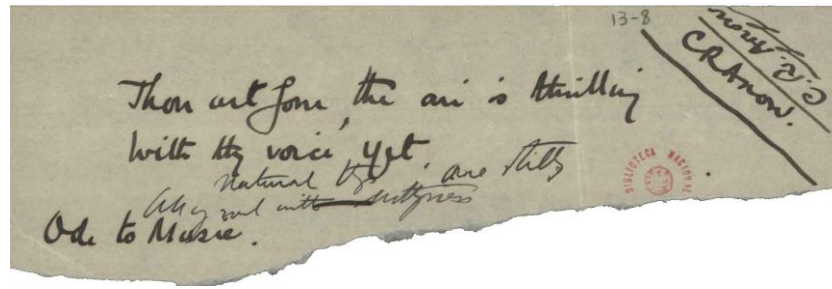 13-8
C. R. Anon
CRANON.
Thou art gone, the air is thrilling
With thy voice, yet.
natural are
with
Ode to Music.
BIBLIOTECA NACIONAL